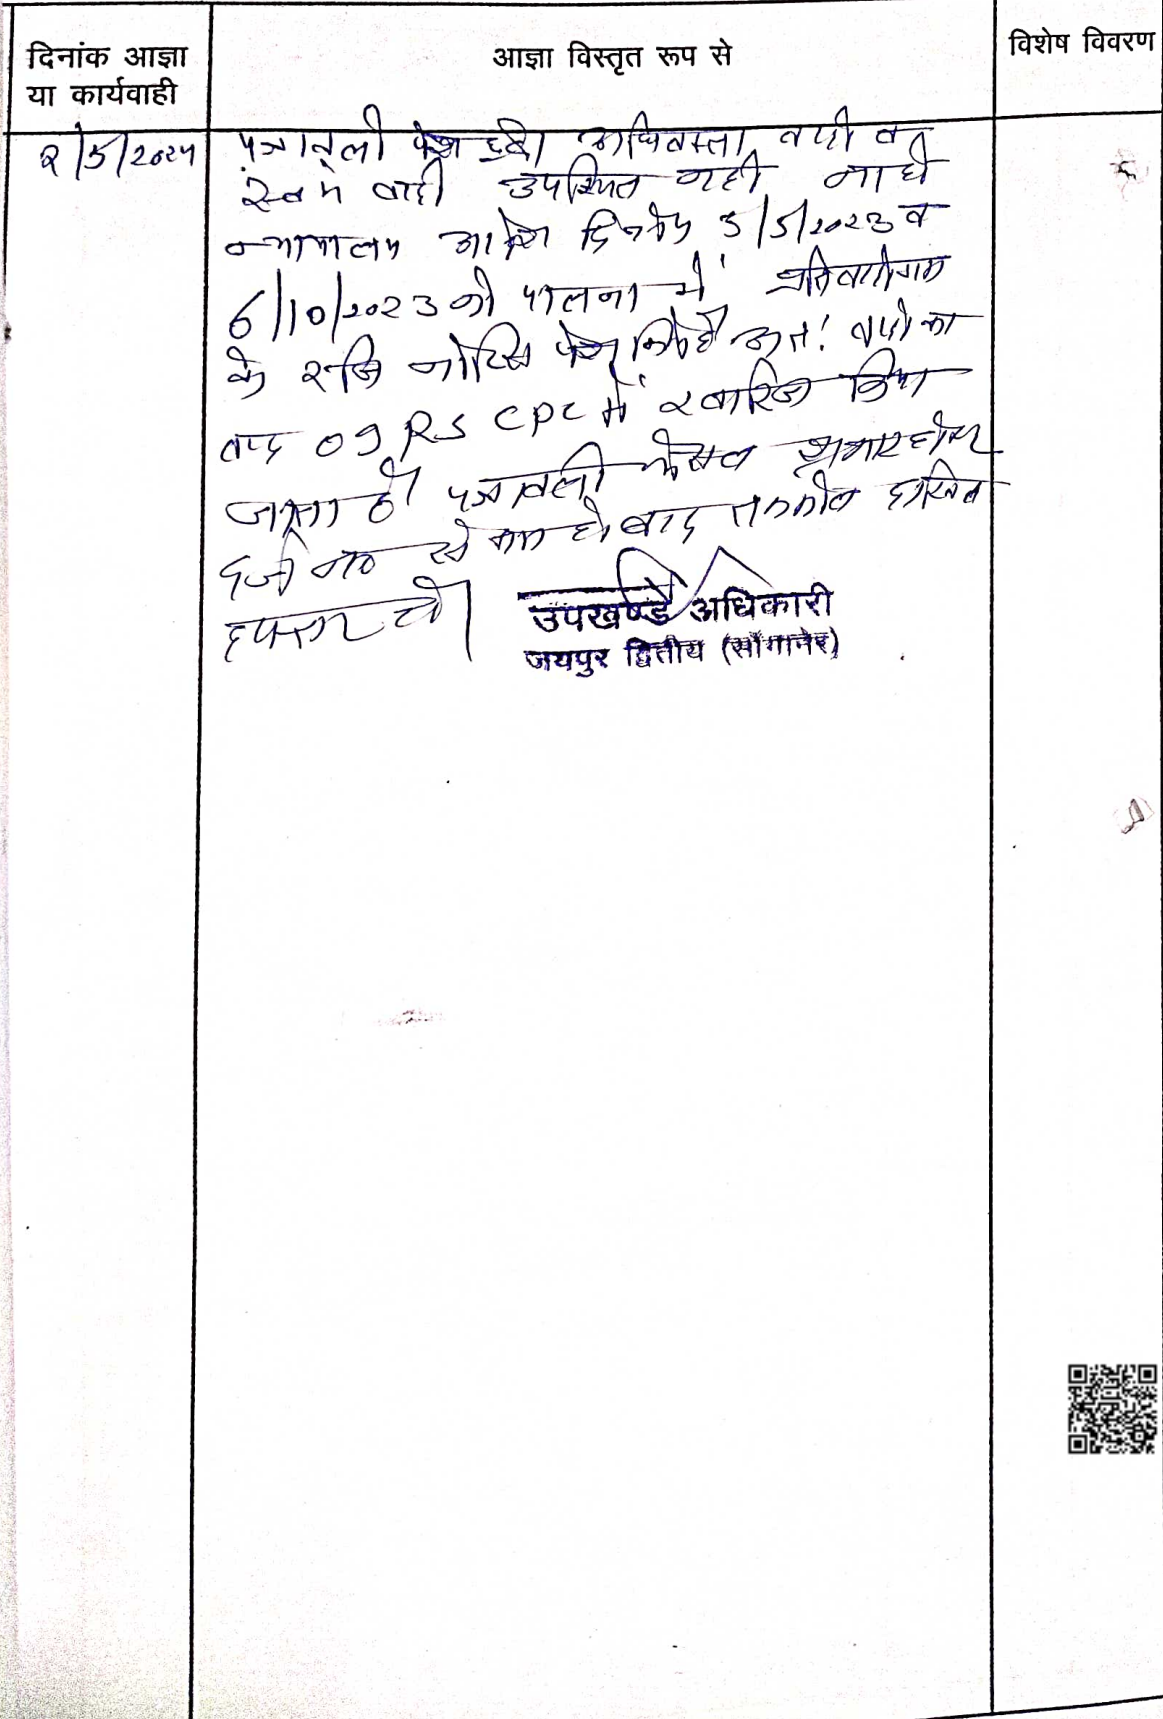 दिनांक आज्ञा
या कार्यवाही
आज्ञा विस्तृत रूप से
विशेष विवरण
2/5/2024
पत्रावली पेश हुई। अधिवक्ता वादी व
स्वयं वादी उपस्थित नहीं
न्यायालय आदेश दिनांक 3/5/2023 व
6/10/2023 की पालना में प्रतिवादीगण
के रजि नोटिस पेश अतः वादी का
वाद 09 R5 CPC में खारिज किया
जाता है। पत्रावली फैसल शुमार होकर
दर्ज न० से कम हो बाद तकमील दाखिल
दफ्तर हो।
उपखण्ड अधिकारी
जयपुर द्वितीय (साँगानेर)